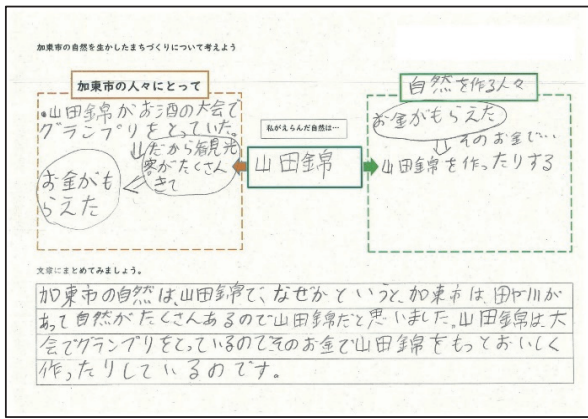 加東市の自然を生かしたまちづくりについて考えよう
加東市の人々にとって
・山田錦がお酒の大会で
グランプリをとっていた。
だから観光
客がたくさん
きて
お金がも
らえた
私がえらんだ自然は…
山田錦
自然を作る人々
お金がもらえた
そのお金で…
山田錦を作ったりする
文章にまとめてみましょう。
加東市の自然は、山田錦で、なぜかというと、加東市は、田や川が
あって自然がたくさんあるので山田錦だと思いました。山田錦は大
会でグランプリをとっているのでそのお金で山田錦をもっとおいしく
作ったりしているのです。